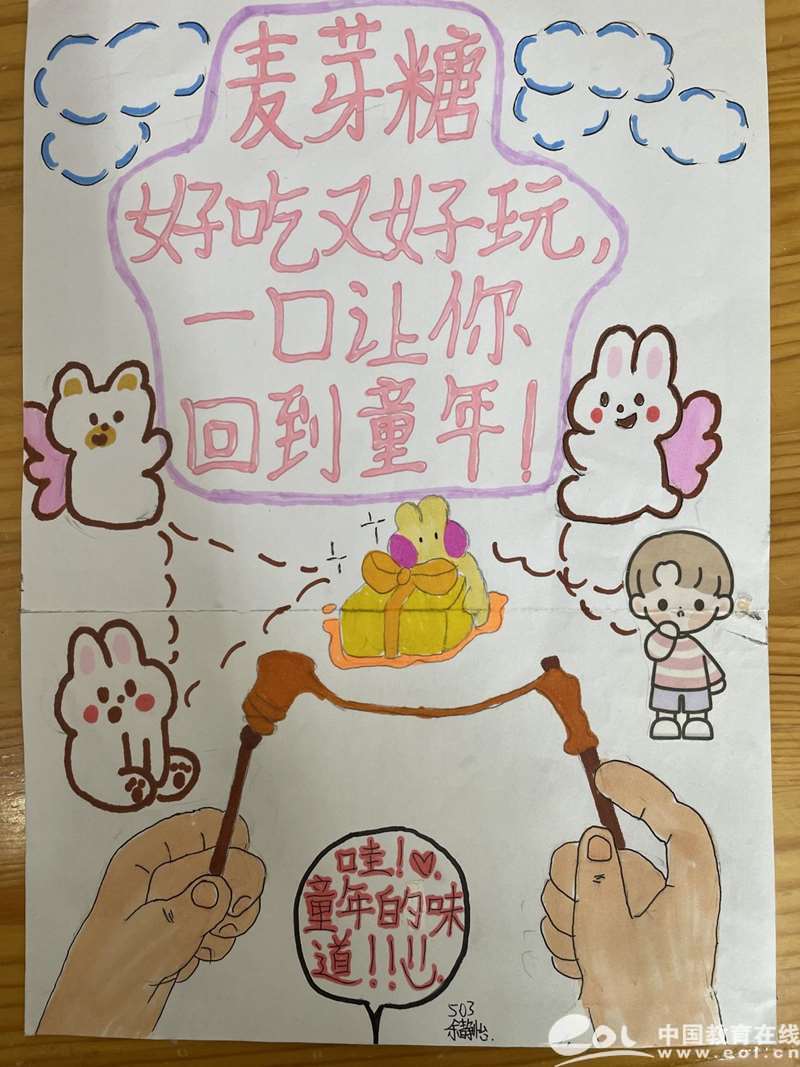 麦芽糖
好吃又好玩,
一口让你
回到童年!
哇!♡.
童年的味
道!!!心.
503
余静怡.
eol 中国教育在线
www.eol.cn